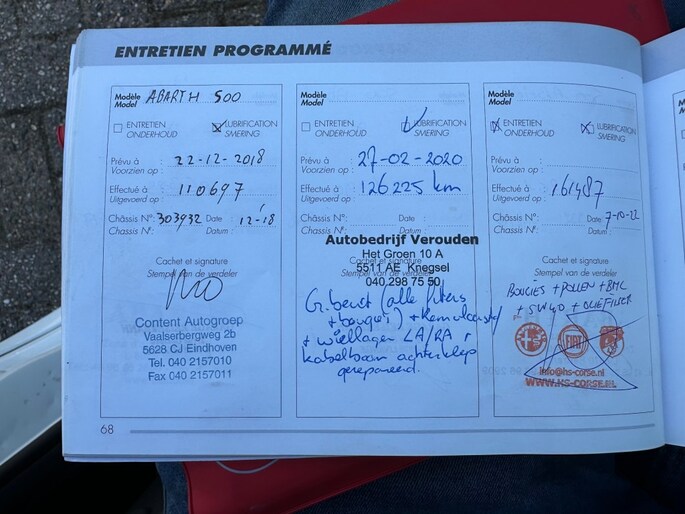 ENTRETIEN PROGRAMMÉ
Modèle
Model
ABARTH 500
ENTRETIEN
ONDERHOUD
LUBRIFICATION
SMERING
Prévu à :
Voorzien op :
22-12-2018
Effectué à :
Uitgevoerd op :
110697
Châssis N°: 303932 Date 12-'18
Chassis N°: Datum :
Cachet et signature
Stempel van de verdeler
Content Autogroep
Vaalserbergweg 2b
5628 CJ Eindhoven
Tel. 040 2157010
Fax 040 2157011
68
Modèle
Model
ENTRETIEN
ONDERHOUD
LUBRIFICATION
SMERING
Prévu à :
Voorzien op :
27-02-2020
Effectué à :
Uitgevoerd op :
126225 km
Châssis N°: Date :
Chassis N°: Datum :
Autobedrijf Verouden
Het Groen 10 A
Cachet et signature
5511 AE Knegsel
Stempel van de verdeler
040.298 75 50
G. beurt (alle filters
+ bougies) + Remvloeistof
+ wiellager LA/RA +
kabelboom achterklep
gerepareerd.
Modèle
Model
ENTRETIEN
ONDERHOUD
LUBRIFICATION
SMERING
Prévu à :
Voorzien op :
Effectué à :
Uitgevoerd op :
161987
Châssis N°: Date 7-10-22
Chassis N°: Datum :
Cachet et signature
Stempel van de verdeler
BOUGIES + POLLEN + BMC
+ 5W40 + OLIEFILTER
FIAT
info@hs-corse.nl
WWW.HS-CORSE.NL